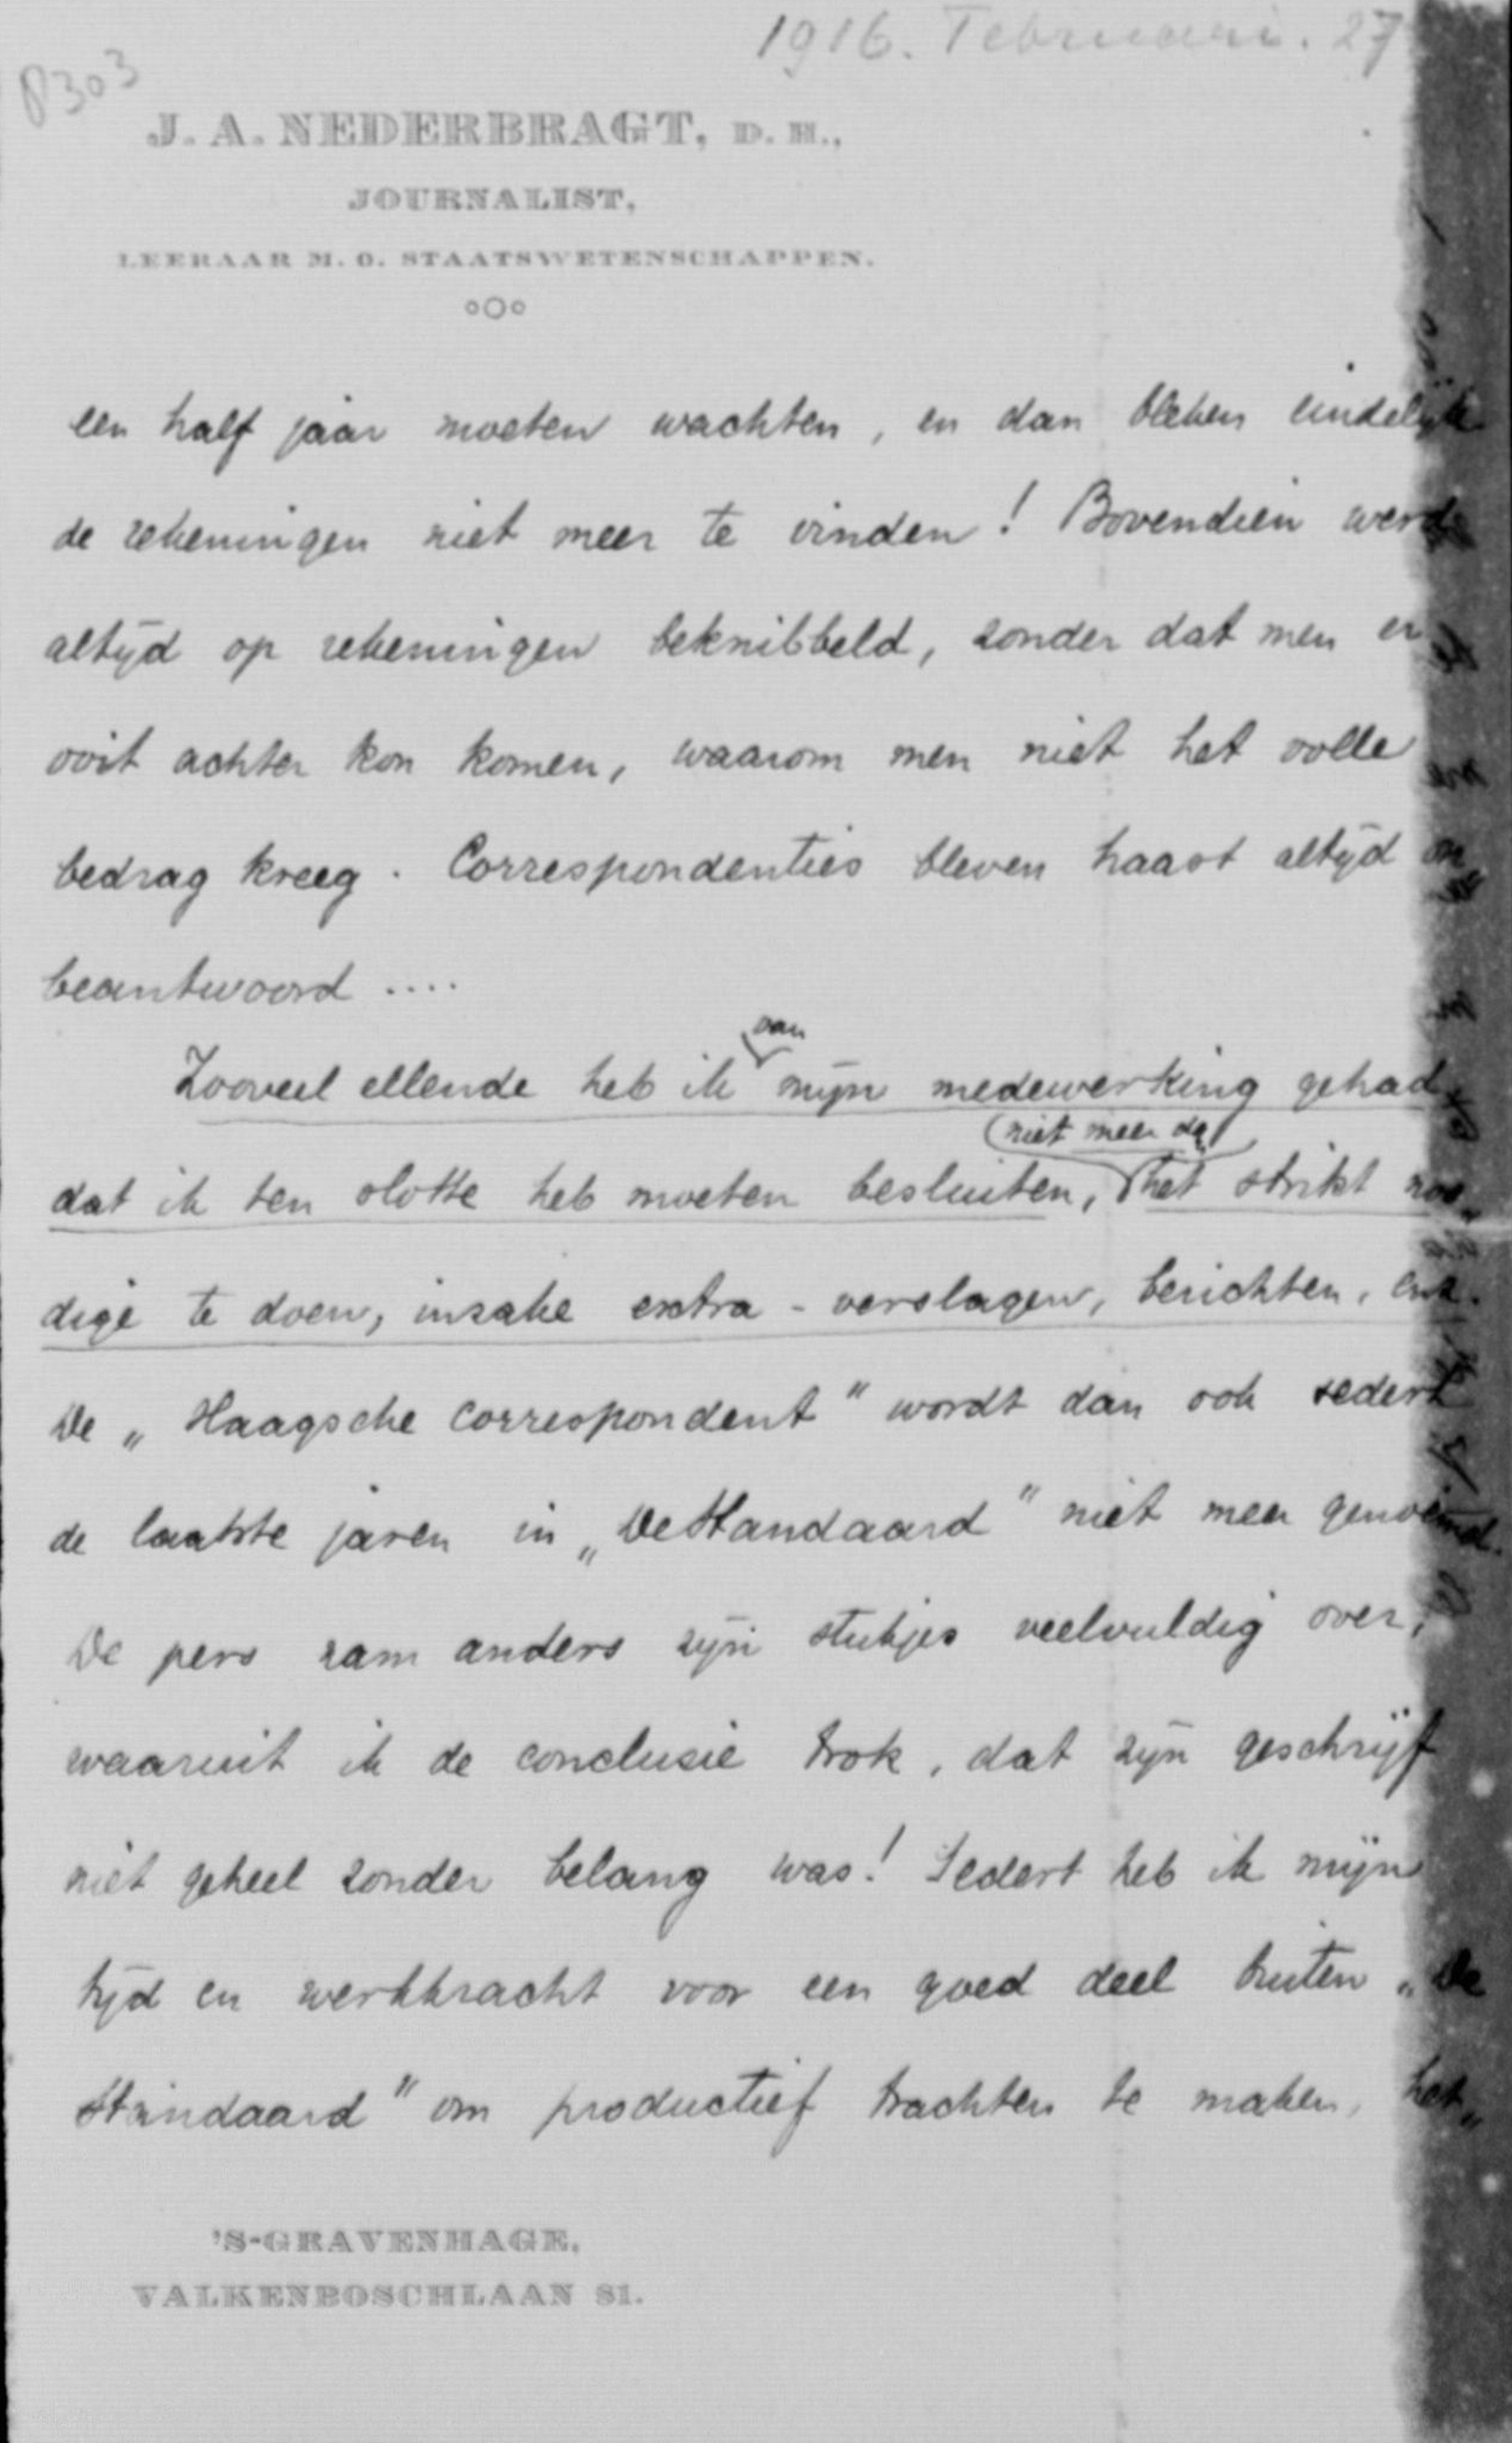 1916. Februari. 27
P303
J. A. NEDERBRAGT, D. H.,
JOURNALIST,
LEERAAR M. O. STAATSWETENSCHAPPEN.
een half jaar moeten wachten, en dan bleken eindelijk
de rekeningen niet meer te vinden! Bovendien werd
altijd op rekeningen beknibbeld, zonder dat men er
ooit achter kon komen, waarom men niet het volle
bedrag kreeg. Correspondenties bleven haast altijd on
beantwoord ....
van
Zooveel ellende heb ik mijn medewerking gehad,
niet meer da
dat ik ten slotte heb moeten besluiten, het strikt noo
dige te doen, inzake extra-verslagen, berichten, enz.
De „Haagsche correspondent" wordt dan ook sedert
de laatste jaren in „De Standaard" niet meer genoemd.
De pers nam anders zijn stukjes veelvuldig over,
waaruit ik de conclusie trok, dat zijn geschrijf
niet geheel zonder belang was! Sedert heb ik mijn
tijd en werkkracht voor een goed deel buiten „De
Standaard" om productief trachten te maken, het
'S-GRAVENHAGE,
VALKENBOSCHLAAN 81.